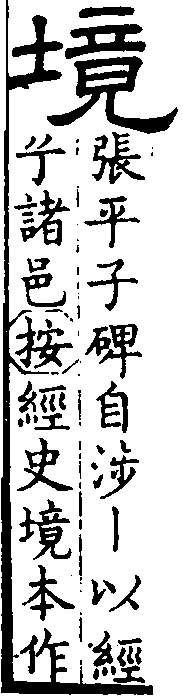 境
張平子碑自涉丨以經
于諸邑按經史境本作